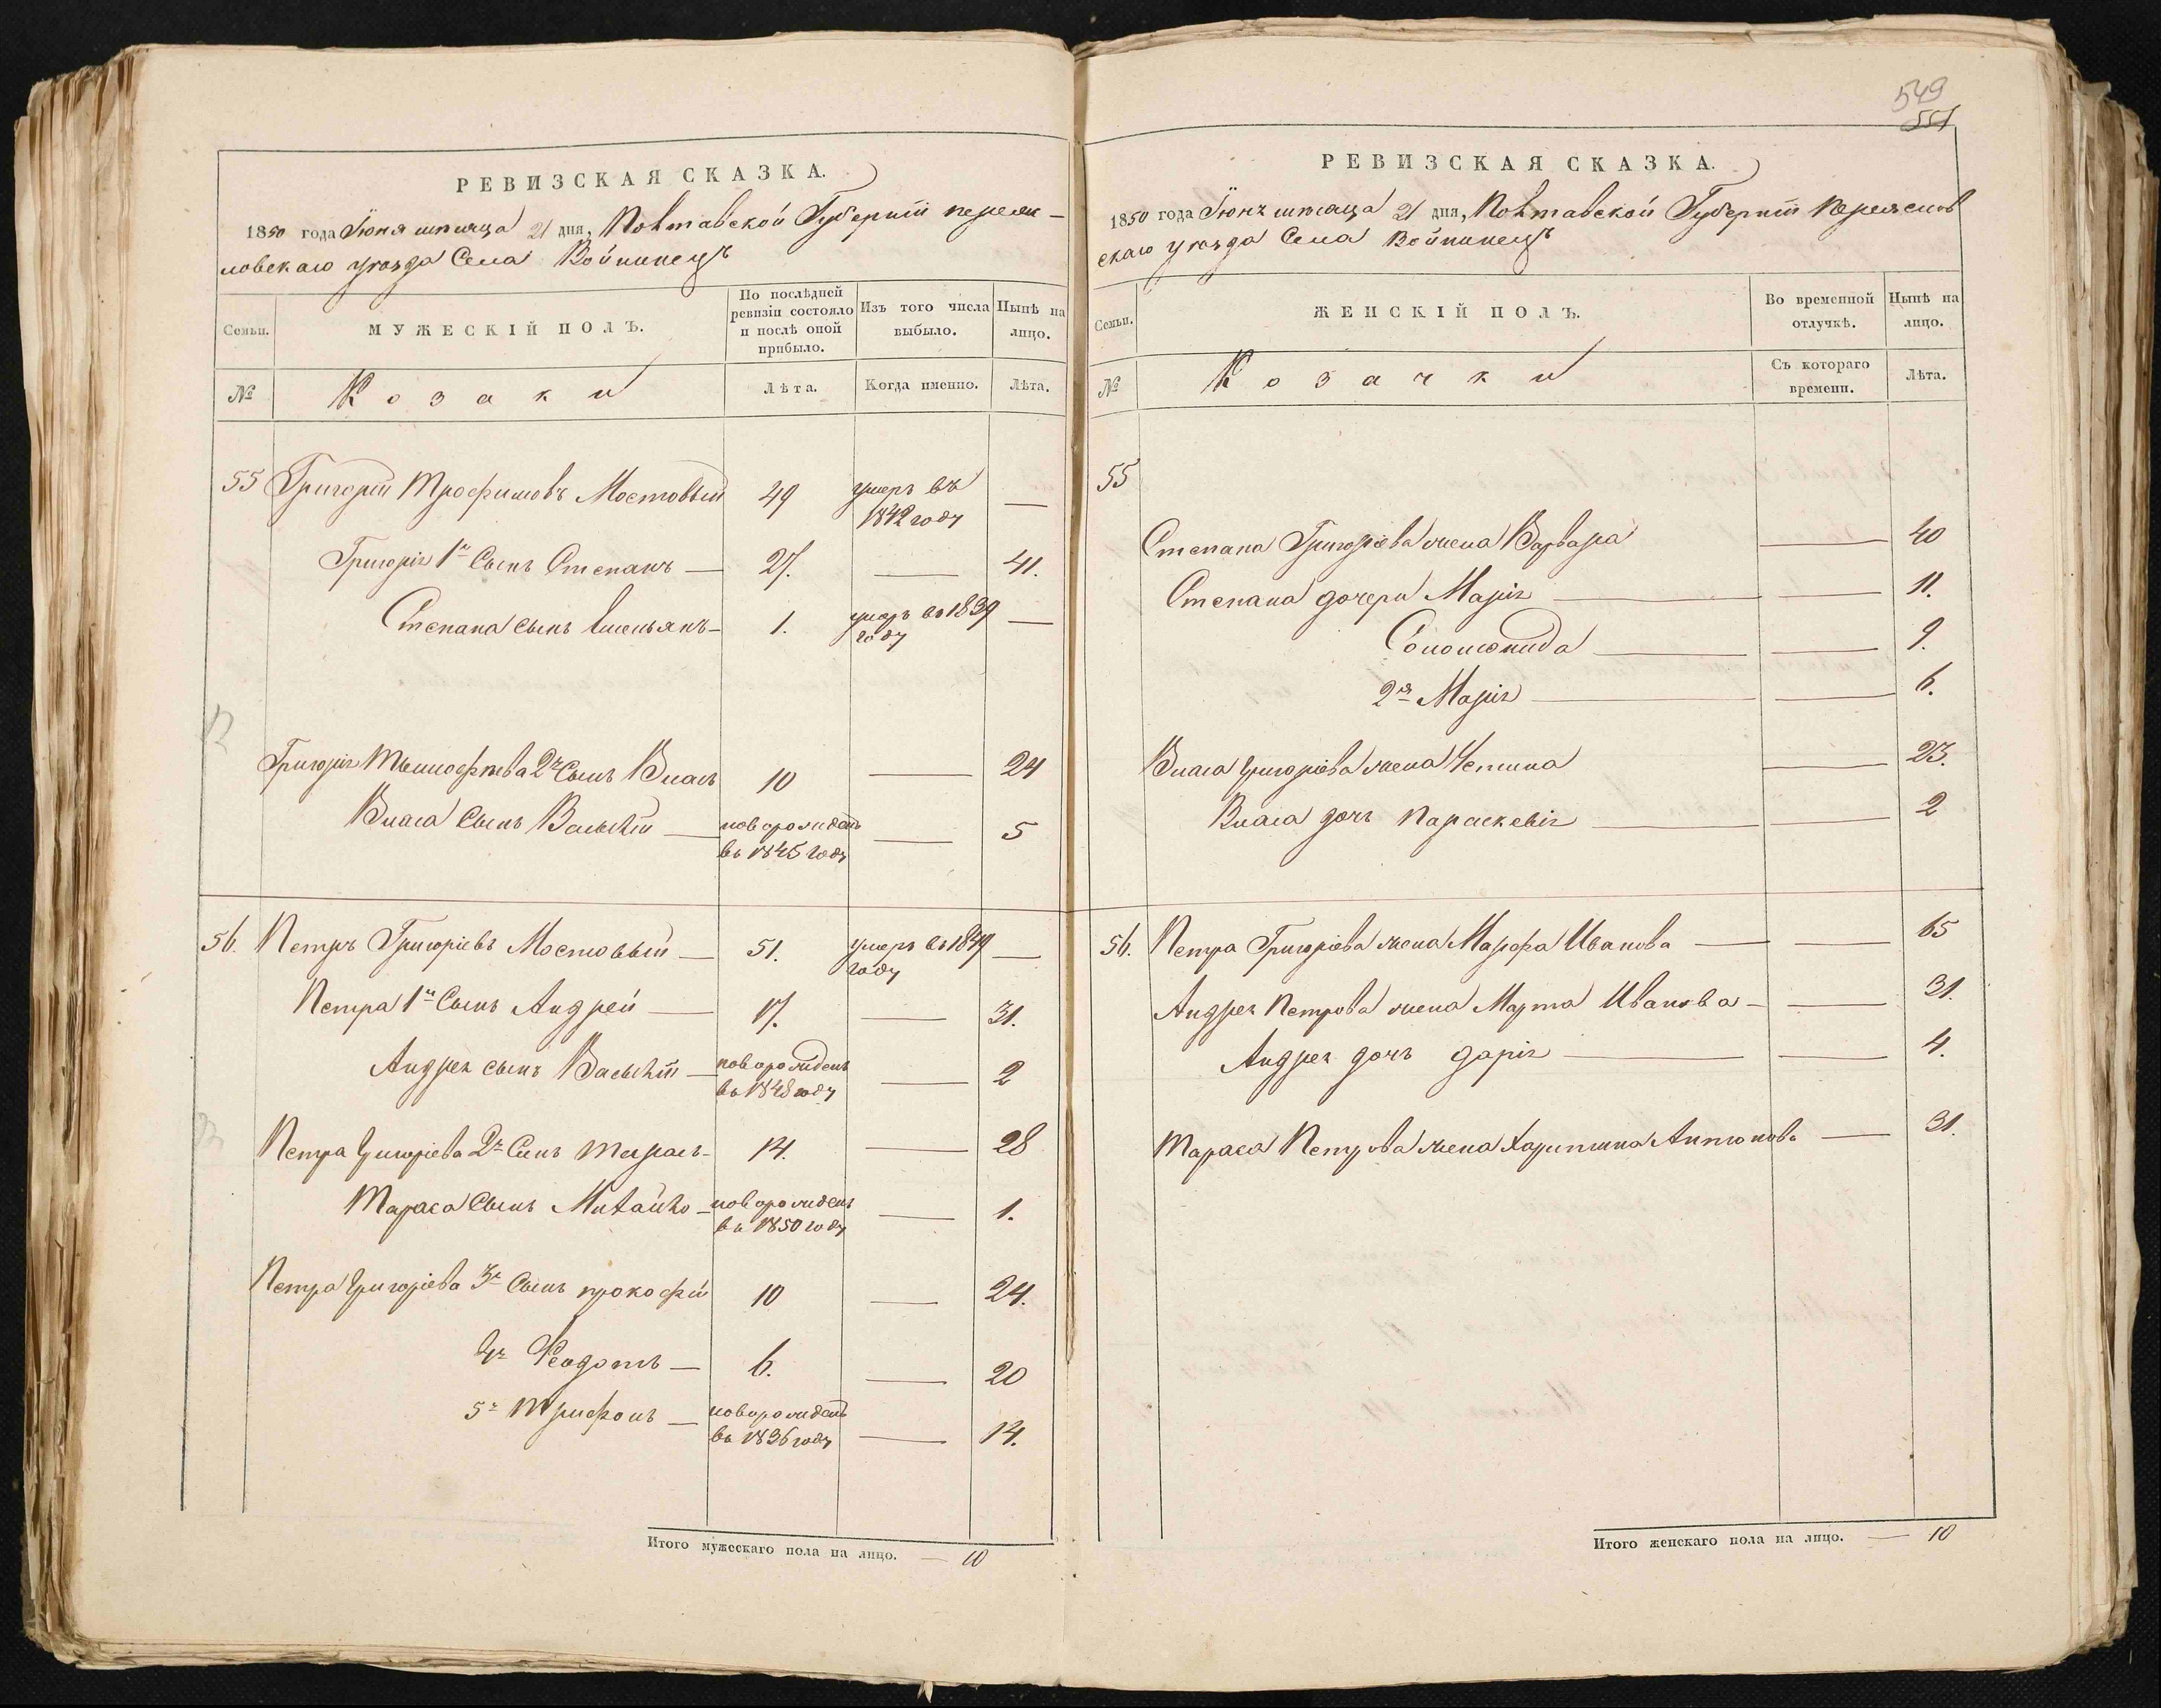 549
551
РЕВИЗСКАЯ СКАЗКА.
1850 года Іюня мѣсяца 21 дня, Полтавской Губерніи Переяс-
ловскаго уѣзда Села Войтинецъ
Семьи.
МУЖЕСКІЙ ПОЛЪ.
По послѣдней ревизіи состояло и послѣ оной прибыло.
Изъ того числа выбыло.
Нынѣ на лицо.
№
Козаки
Лѣта.
Когда именно.
Лѣта.
55 Григорій Трофимовъ Мостовый 49 умеръ въ 1842 году —
Григорія 1й Сынъ Степанъ — 27. — 41.
Степана сынъ Емельянъ — 1. умеръ въ 1839 году —
Григорія Тимофѣева 2й Сынъ Власъ 10 — 24
Власа Сынъ Василій — новорожденъ въ 1845 году — 5
56. Петръ Григоріевъ Мостовый — 51. умеръ въ 1849 году —
Петра 1й Сынъ Андрей — 17. — 31.
Андрея сынъ Василій — новорожденъ въ 1848 году — 2
Петра Григоріева 2й Сынъ Тарасъ — 14. — 28
Тараса Сынъ Михайло — новорожденъ въ 1850 году — 1.
Петра Григоріева 3й Сынъ прокофій 10 — 24.
4й Феодотъ — 6. — 20
5й Трифонъ — новорожденъ въ 1836 году — 14.
Итого мужескаго пола на лицо. — 10
РЕВИЗСКАЯ СКАЗКА.
1850 года Іюня мѣсяца 21 дня, Полтавской Губерніи Переяслов
скаго уѣзда Села Войтинецъ
Семьи.
ЖЕНСКІЙ ПОЛЪ.
Во временной отлучкѣ.
Нынѣ на лицо.
№
Козачки
Съ котораго времени.
Лѣта.
55
Степана Григоріева жена Варвара — 40
Степана дочери Марія — — 11.
Соломонида — — 9.
2я Марія — — 6.
Власа Григоріева жена — 23.
Власа дочь Параскевія — — 2
56. Петра Григоріева жена Марфа Иванова — — 65
Андрея Петрова жена Марта Иванова — — 31.
Андрея дочь дарія — — 4.
Тараса Петрова жена Харитина Антонова — 31.
Итого женскаго пола на лицо. — 10